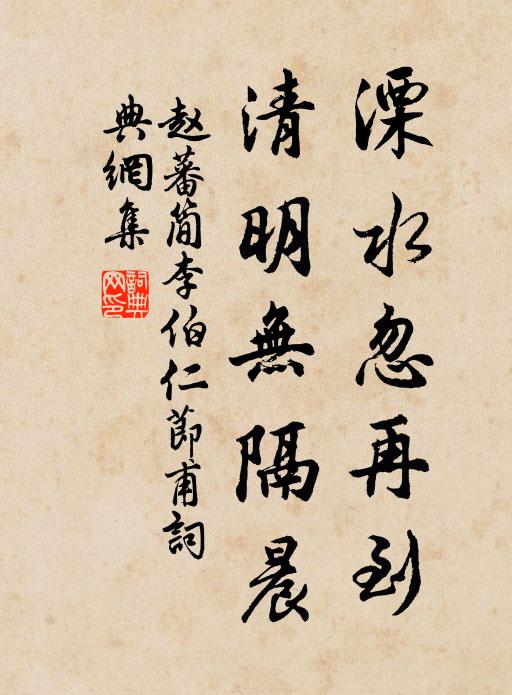 溧水忽再到
清明無隔晨
赵蕃简李伯仁節甫詞
典網集
詞典网印